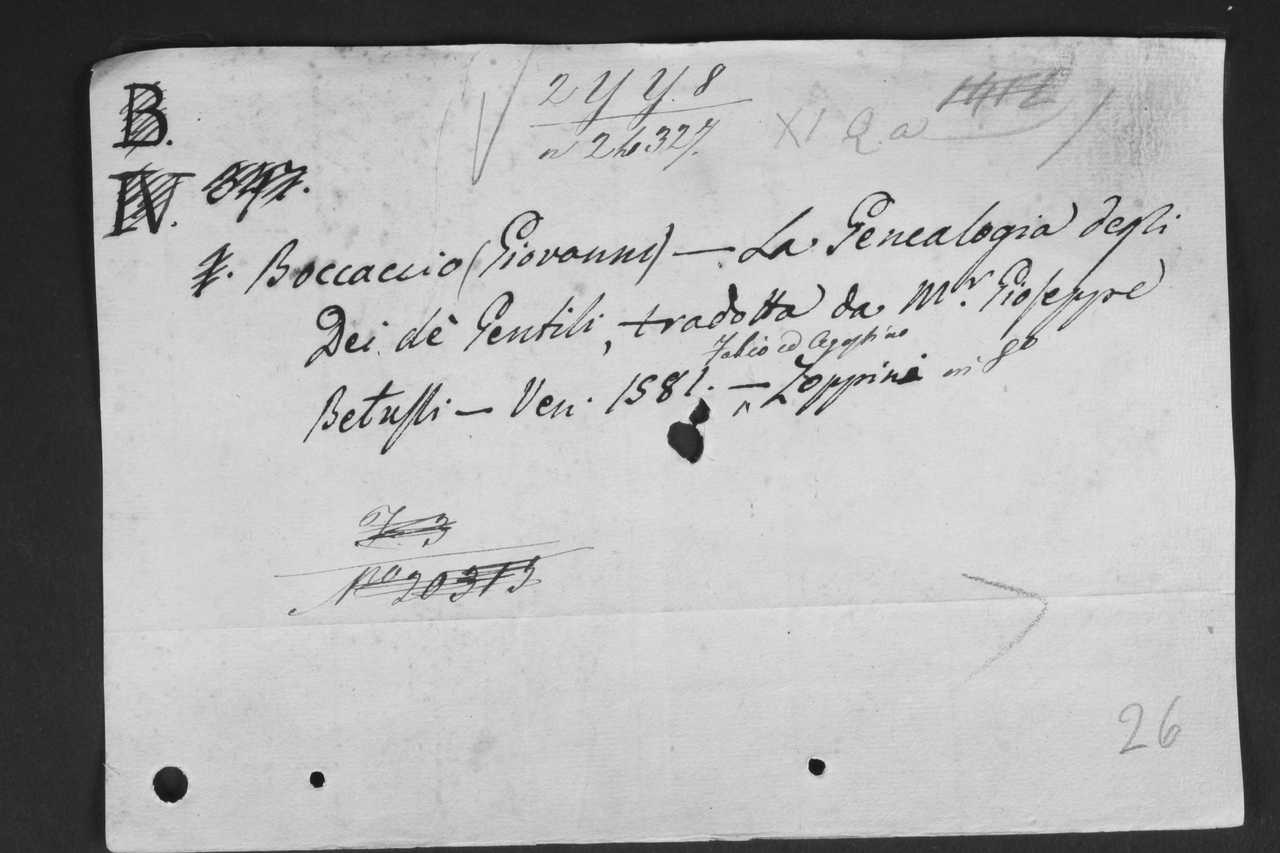 B.
2 Y Y. 8
n 24327.
XI Q. a
IV. 347.
Boccaccio (Giovanni) — La Genealogia degli
Dei de' Gentili, tradotta da Mr. Gioseppe
Betussi — Ven. 1581. — Fabio ed Agostino Zoppini in 8o
Z. 3
No 20313
26